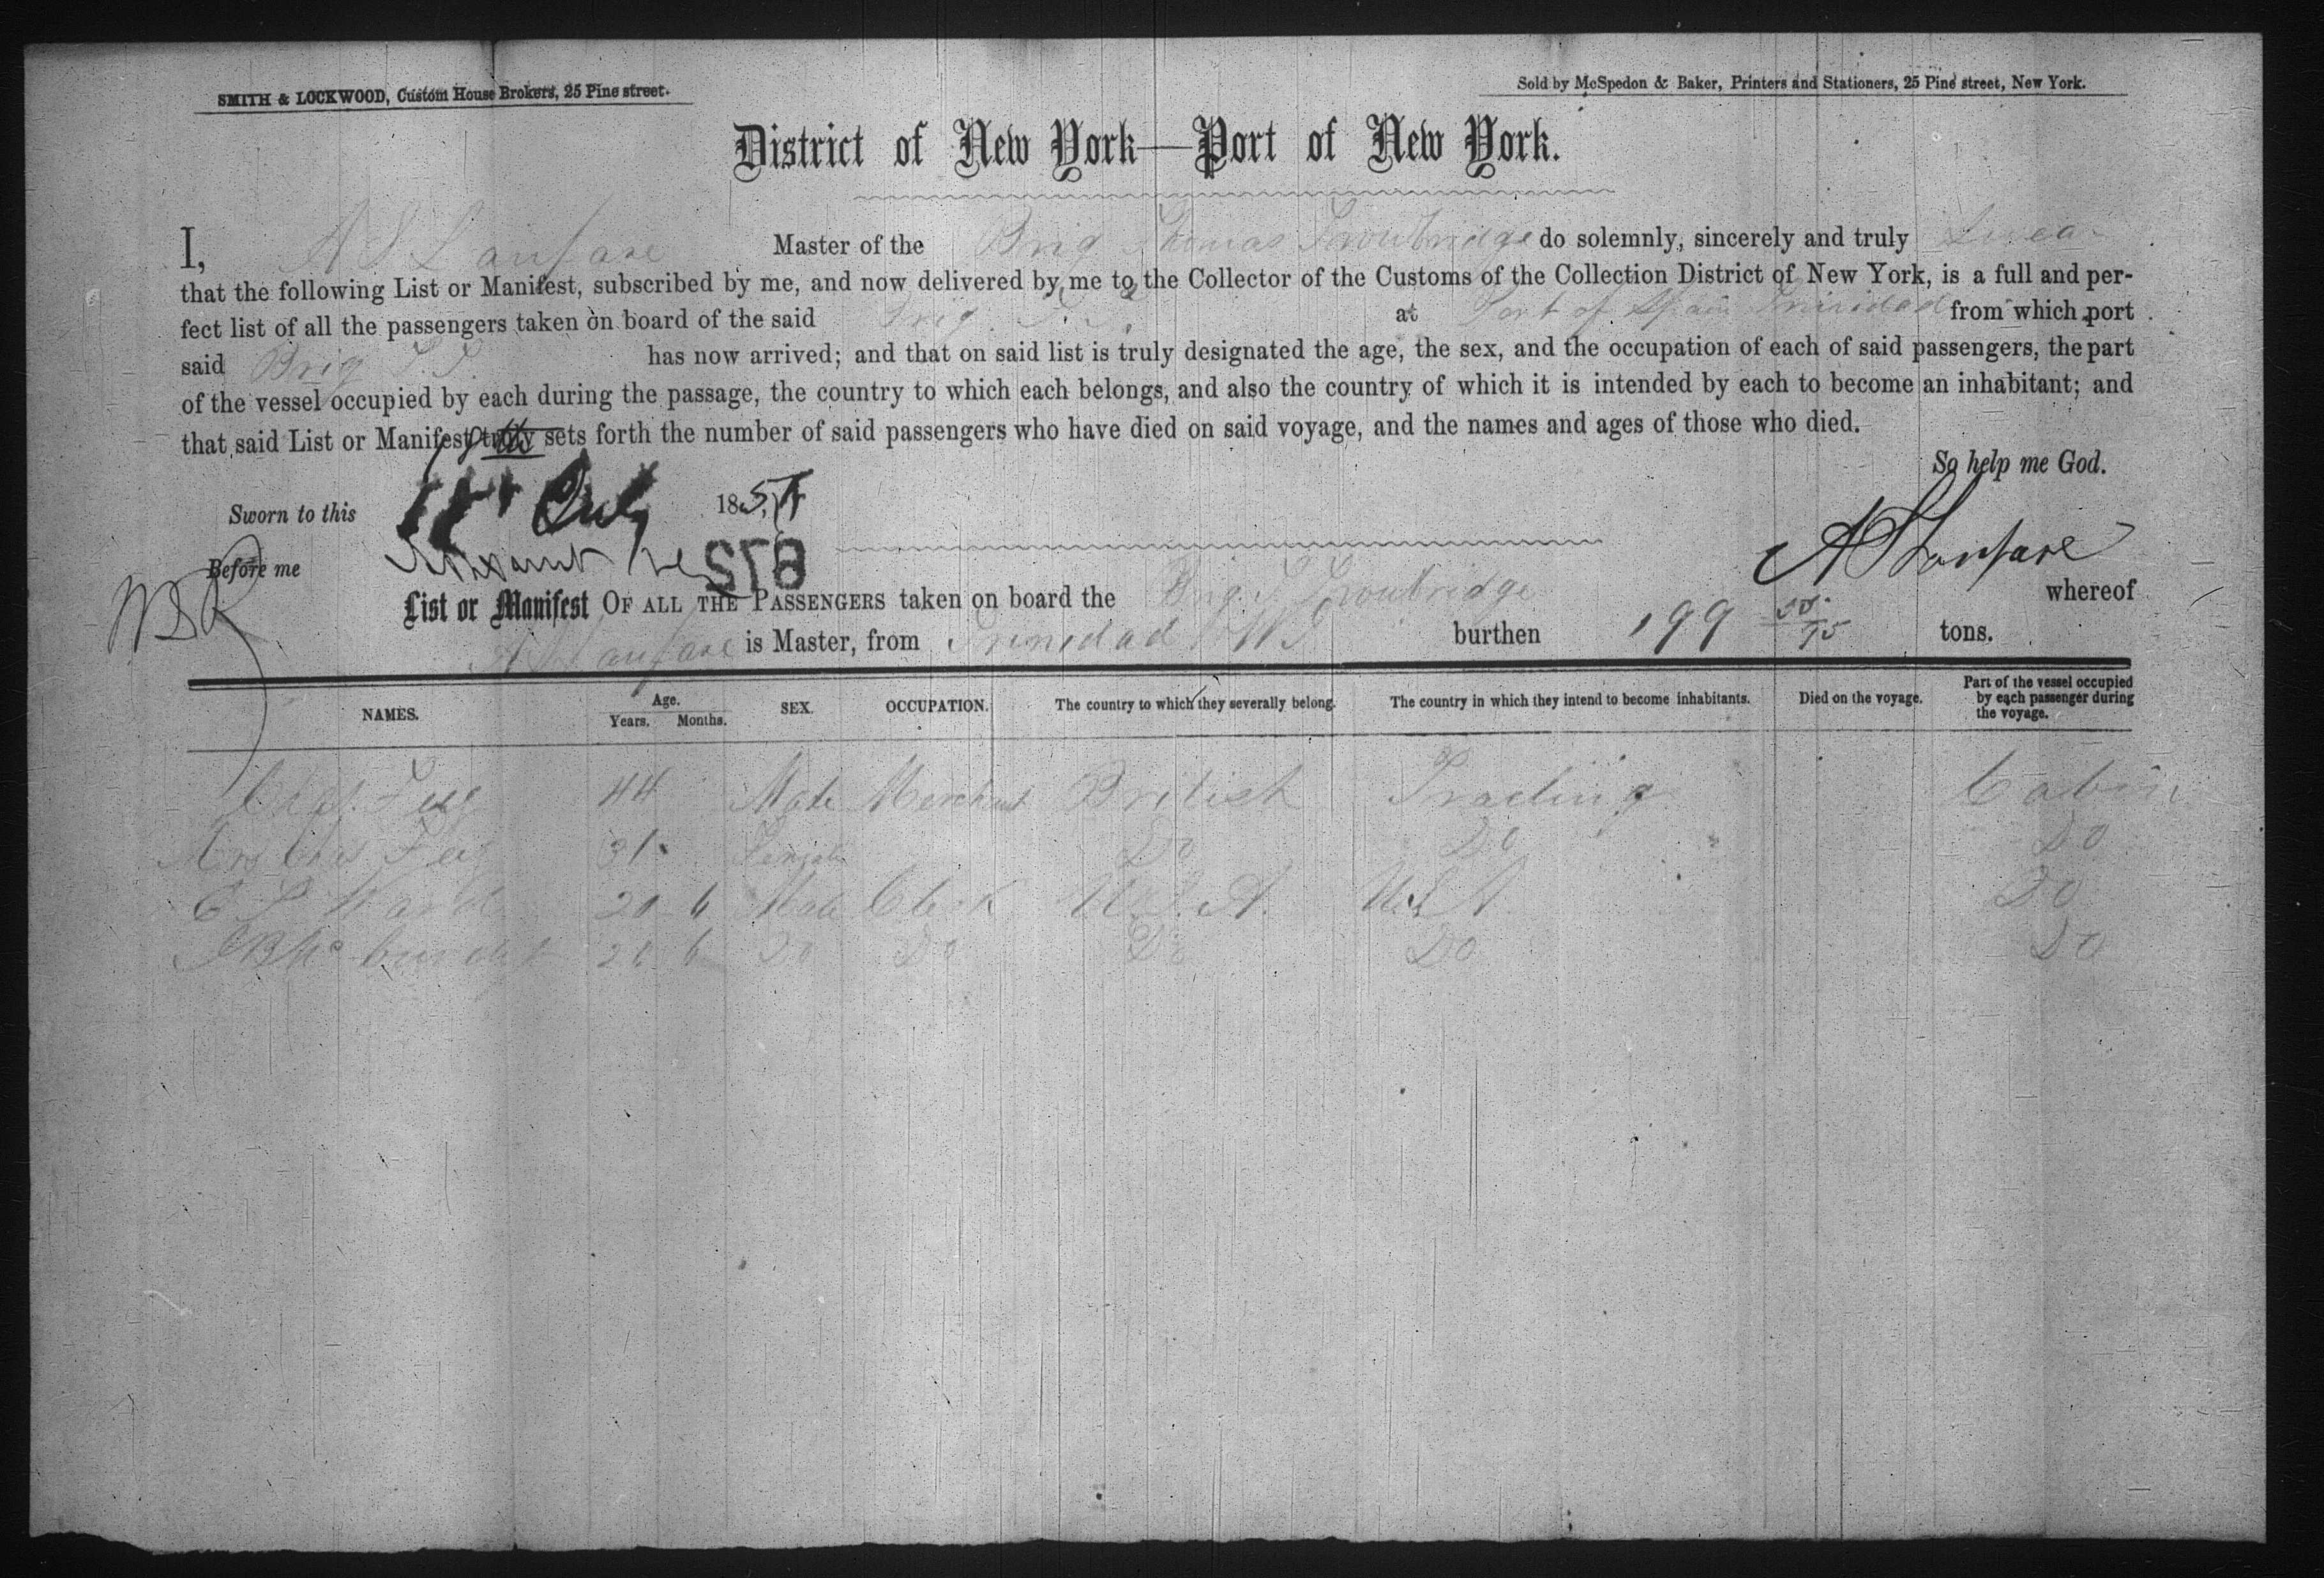 SMITH & LOCKWOOD, Custom House Brokers, 25 Pine street.
Sold by McSpedon & Baker, Printers and Stationers, 25 Pine street, New York.
District of New York—Port of New York.
I, A S Lanfare Master of the Brig Thomas Trowbridge do solemnly, sincerely and truly Swear
that the following List or Manifest, subscribed by me, and now delivered by me to the Collector of the Customs of the Collection District of New York, is a full and per-
fect list of all the passengers taken on board of the said Brig T. T. at Port of Spain Trinidad from which port
said Brig T. T. has now arrived; and that on said list is truly designated the age, the sex, and the occupation of each of said passengers, the part
of the vessel occupied by each during the passage, the country to which each belongs, and also the country of which it is intended by each to become an inhabitant; and
that said List or Manifest truly sets forth the number of said passengers who have died on said voyage, and the names and ages of those who died.
So help me God.
Sworn to this July 185
Before me
A S Lanfare
List or Manifest OF ALL THE PASSENGERS taken on board the Brig T Trowbridge whereof
A S Lanfare is Master, from Trinidad W I burthen 199 /95 tons.
NAMES. Age. Years. Months. SEX. OCCUPATION. The country to which they severally belong. The country in which they intend to become inhabitants. Died on the voyage. Part of the vessel occupied by each passenger during the voyage.
44 Male Merchant British Trading Cabin
Mrs Chas 31 Female Do Do " Do
Ward 20 6 Male Clerk U.S.A. U.S.A. Do
6 Do Do Do Do Do